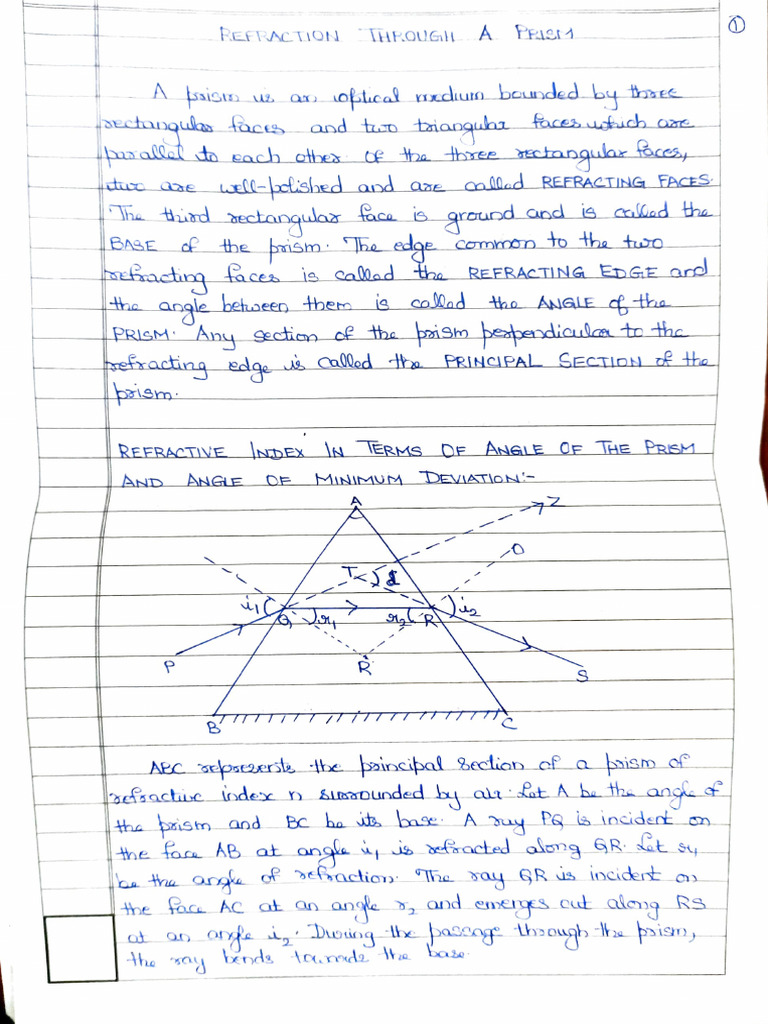 ①
REFRACTION THROUGH A PRISM
A prism is an optical medium bounded by three
rectangular faces and two triangular faces which are
parallel to each other. Of the three rectangular faces,
two are well-polished and are called REFRACTING FACES.
The third rectangular face is ground and is called the
BASE of the prism. The edge common to the two
refracting faces is called the REFRACTING EDGE and
the angle between them is called the ANGLE of the
PRISM. Any section of the prism perpendicular to the
refracting edge is called the PRINCIPAL SECTION of the
prism.
REFRACTIVE INDEX IN TERMS OF ANGLE OF THE PRISM
AND ANGLE OF MINIMUM DEVIATION:-
A
Z
O
T
i₁
Q
r₁
r₂
R
i₂
P
R
S
B
C
ABC represents the principal section of a prism of
refractive index n surrounded by air. Let A be the angle of
the prism and BC be its base. A ray PQ is incident on
the face AB at angle i₁ is refracted along QR. Let r₁
be the angle of refraction. The ray QR is incident on
the face AC at an angle r₂ and emerges out along RS
at an angle i₂. During the passage through the prism,
the ray bends towards the base.